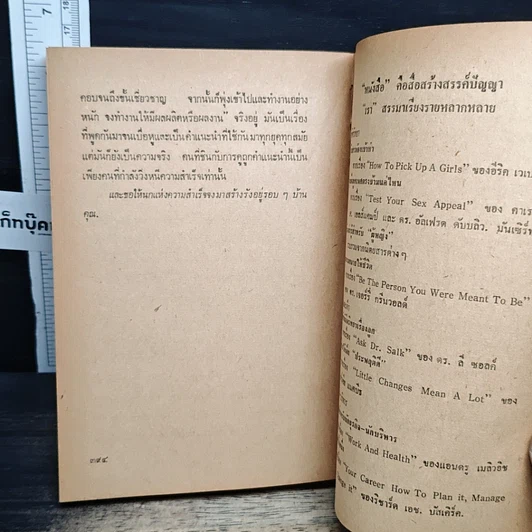 คอบจนถึงขั้นเชี่ยวชาญ จากนั้นก็พุ่งเข้าไปและทำงานอย่าง
หนัก จงทำงานให้มีผลผลิตหรือผลงาน" จริงอยู่ มันเป็นเรื่อง
ที่พูดกันมาจนเบื่อหูและเป็นคำแนะนำที่ใช้กันมาทุกยุคทุกสมัย
แต่มันก็ยังเป็นความจริง คนที่ชินกับการดูถูกคำแนะนำนี้เป็น
เพียงคนที่กำลังวิ่งหนีความสำเร็จเท่านั้น
และขอให้นกแห่งความสำเร็จจงมาสร้างรังอยู่รอบ ๆ บ้าน
คุณ.
๓๙๔
"หนังสือ" คือสื่อสร้างสรรค์ปัญญา
"เรา" สรรมาเรียงรายหลากหลาย
"How To Pick Up A Girls" ของอีริค
"Test Your Sex Appeal" ของ
และ ดร. อัลเฟรด ดับบลิว.
"ผู้หญิง"
จากเอกสารต่าง ๆ
"Be The Person You Were Meant To Be"
ดร. เจอร์รี่ กรีนวอลด์
"Ask Dr. Salk" ของ ดร. ลี ซอลค์
"Little Changes Mean A Lot" ของ
นักบริหาร
"Work And Health" ของแอนดรู เมลิวอิช
"Your Career How To Plan it, Manage
it" ของริชาร์ด เอช. บัสเคิร์ค.
ก็ทบุ๊ค
7
1